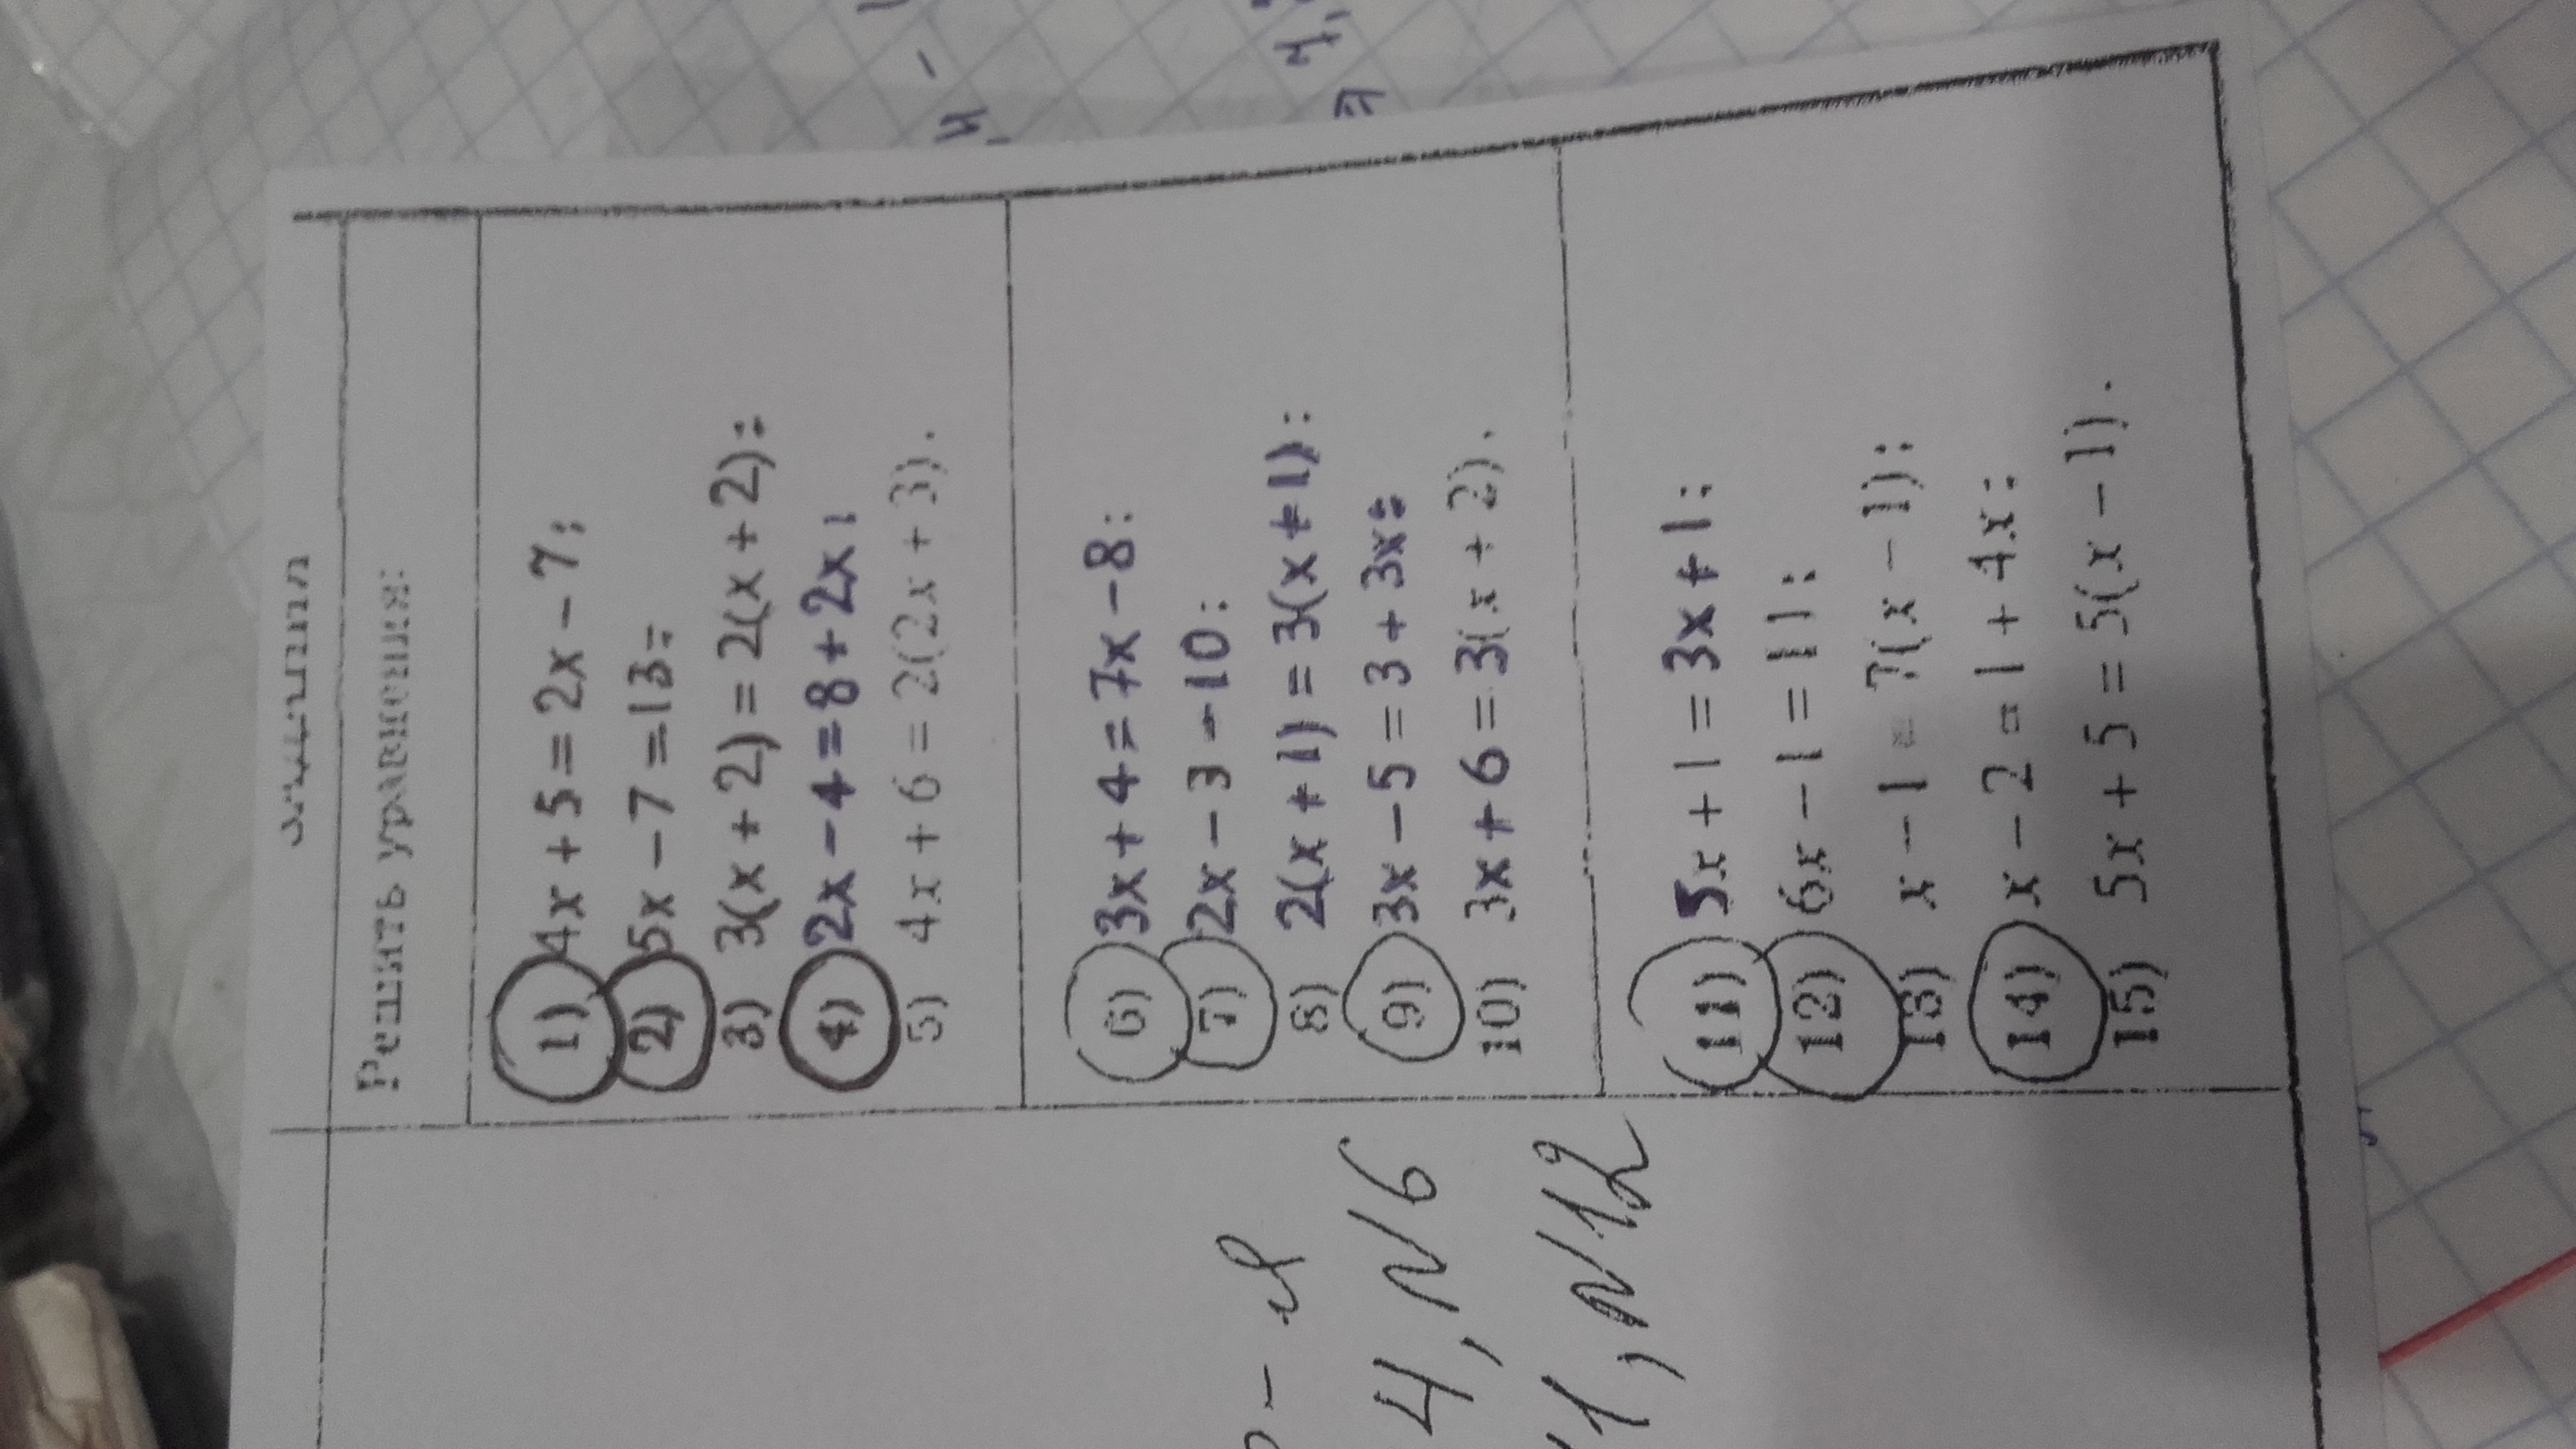 Решить уравнения:
1) 4x + 5 = 2x − 7;
2) 5x − 7 = 13;
3) 3(x + 2) = 2(x + 2);
4) 2x − 4 = 8 + 2x;
5) 4x + 6 = 2(2x + 3).
6) 3x + 4 = 7x − 8;
7) 2x − 3 − 10;
8) 2(x + 1) = 3(x + 1);
9) 3x − 5 = 3 + 3x;
10) 3x + 6 = 3(x + 2).
11) 5x + 1 = 3x + 1;
12) 6x − 1 = 11;
13) x − 1 = 7(x − 1);
14) x − 2 = 1 + 4x;
15) 5x + 5 = 5(x − 1).
4, N6
1, N12